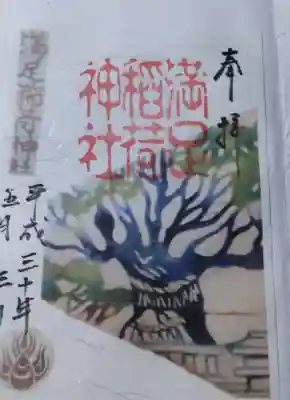 奉拝
満足
稲荷
神社
満足稲荷神社
平成三十年
五月三日